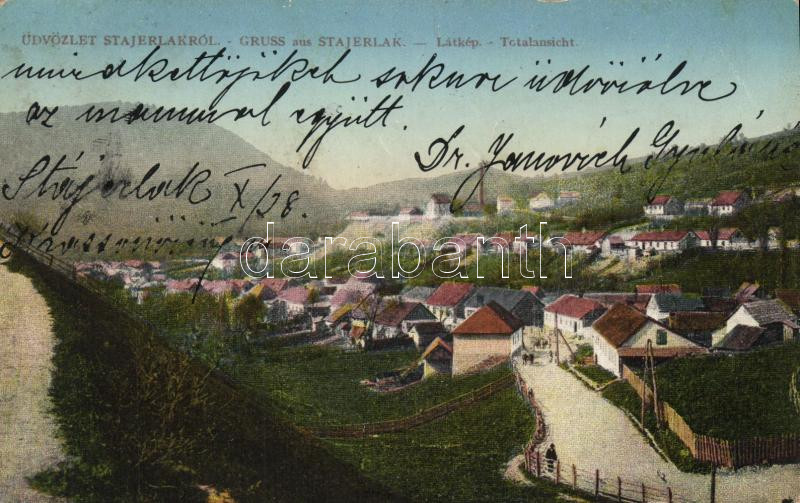 ÜDVÖZLET STAJERLAKRÓL. - GRUSS aus STAJERLAK. — Látkép. - Totalansicht.
mindkettőjüket sokszor üdvözölve
az mammal együtt.
Dr. Janovich
Stájerlak X/28.
darabanth